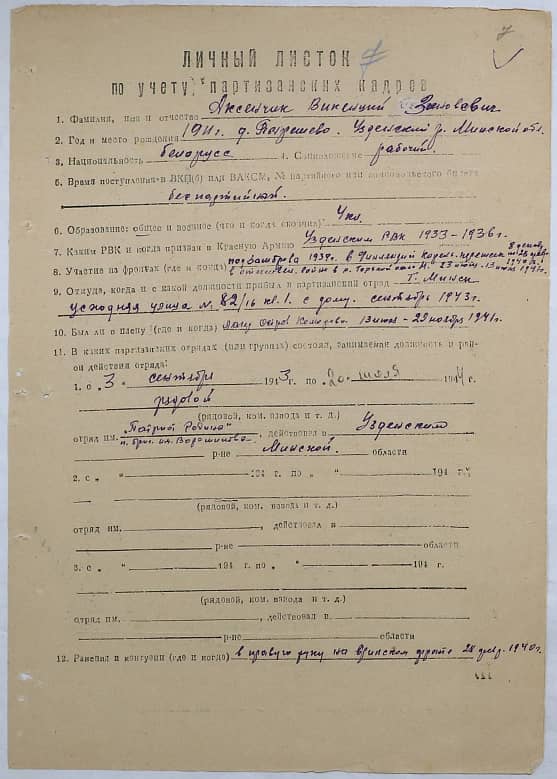 7
ЛИЧНЫЙ ЛИСТОК
по учету партизанских кадров
1. Фамилия, имя и отчество Аксенчик Викентий
2. Год и место рождения 1911 г. д. Теляшево. Узденский р. Минской обл.
3. Национальность белорусс 4. Соцположение рабочий
5. Время поступления в ВКП(б) или ВЛКСМ, № партийного или комсомольского билета
беспартийный.
6. Образование: общее и военное (что и когда окончил) 4 кл.
7. Каким РВК и когда призван в Красную Армию Узденским РВК 1933–1936 г.
8. Участие на фронтах (где и когда) 1939 г. в Финляндии
9. Откуда, когда и с какой должности прибыл в партизанский отряд г. Минск
улица № 82/16 кв. 1. с дому. сентябрь 1943 г.
10. Был ли в плену (где и когда) 13 июля – 29 ноября 1941 г.
11. В каких партизанских отрядах (или группах) состоял, занимаемая должность и рай-
он действия отряда:
1. с 3 " сентября 1943 г. по " 20 " июля 1944 г.
рядовой
(рядовой, ком. взвода и т. д.)
отряд им. "Патриот Родины" , действовал в Узденском
п. бриг. им. Ворошилова
р-не Минской области
2. с " " 194 г. по " " 194 г.
(рядовой, ком. взвода и т. д.)
отряд им. , действовал в
р-не области
3. с " " 194 г. по " " 194 г.
(рядовой, ком. взвода и т. д.)
отряд им. , действовал в
р-не области
12. Ранения и контузии (где и когда) в правую руку на финском фронте 28 февр. 1940 г.